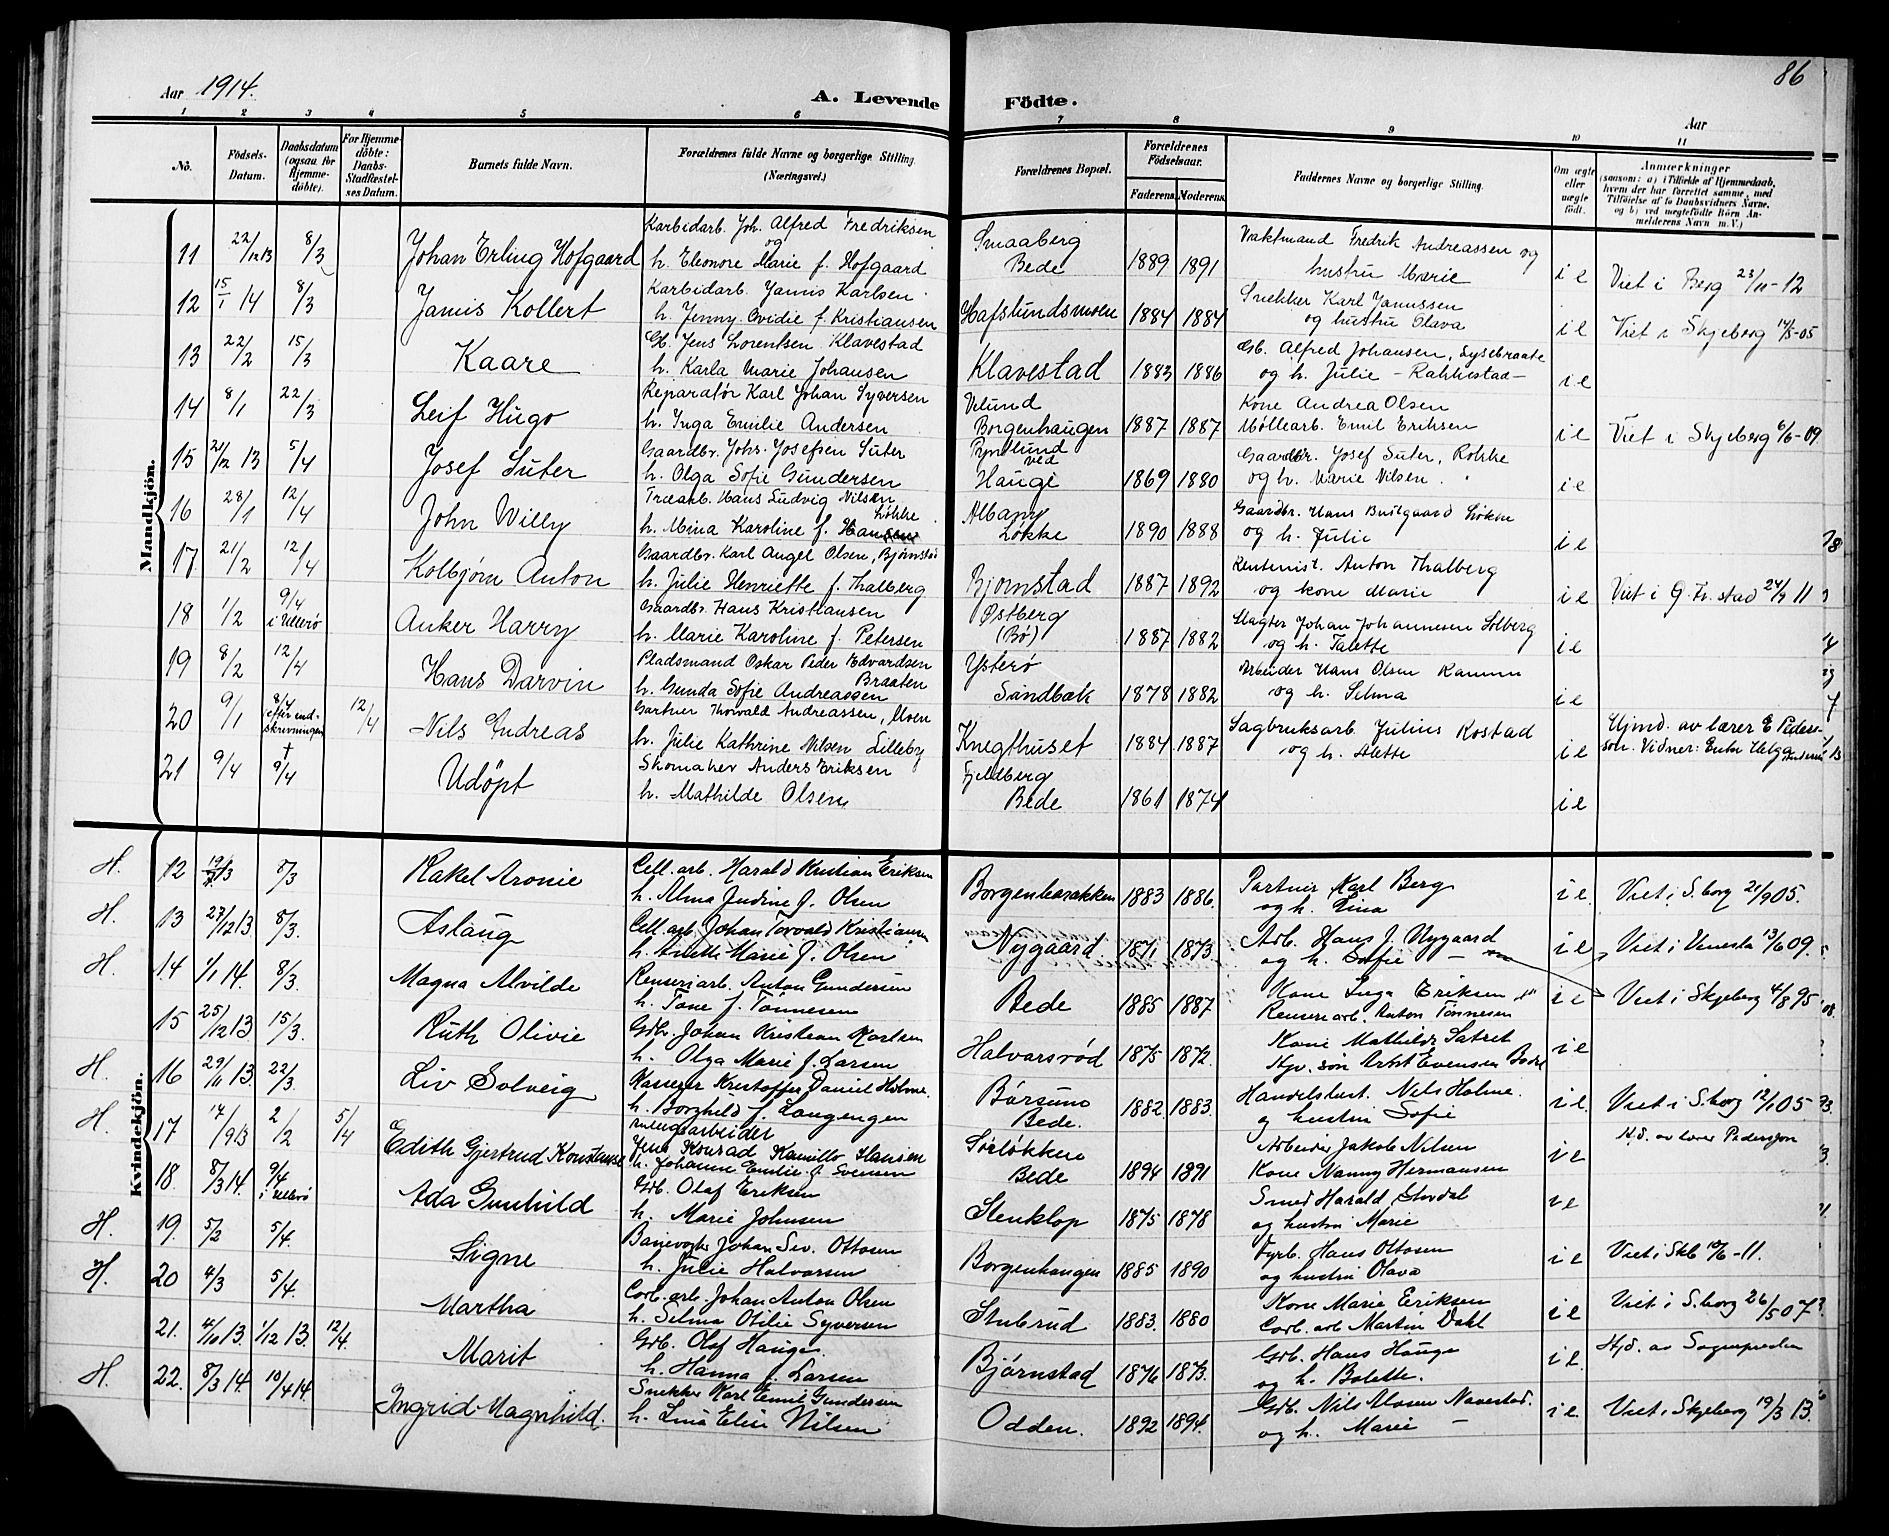 86
Aar 1914.
A. Levende Födte.
Aar
1 2 3 4 5 6 7 8 9 10 11
No.
Födsels-Datum.
Daabsdatum (ogsaa for Hjemme-döbte).
For Hjemme-döbte: Daabs-Stadfæstel-ses Datum.
Barnets fulde Navn.
Forældrenes fulde Navne og borgerlige Stilling. (Næringsvei.)
Forældrenes Bopæl.
Forældrenes Födselsaar.
Faderens. Moderens.
Faddernes Navne og borgerlige Stilling.
Om ægte eller uægte födt.
Anmerkninger (saasom: a) i Tilfælde af Hjemmedaab, hvem der har forrettet samme, med Tilföielse af to Daabsvidners Navne, og b) ved uægtefödte Börn An-melderens Navn m. V.)
Mandkjön.
11 22/12 13 8/3 Johan Erling Hofgaard Karbidarb. Joh. Alfred Fredriksen og h. Eleonore Marie f. Hofgaard Smaaberg Bede 1889 1891 Vaktmand Fredrik Andreassen og hustru Marie i e Viet i Berg 23/11-12
12 15/1 14 8/3 Janus Kollert Karbidarb. Janus Karlsen h. Jenny Ovidie f. Kristiansen Hafslundsmoen 1884 1884 Snekker Karl Janussen og hustru Olava i e Viet i Skjeberg 14/5-05
13 22/2 15/3 Kaare Gb. Jens Lorentsen Klavestad h. Karla Marie Johansen Klavestad 1883 1886 Gb. Alfred Johansen, Lysebraate og h. Julie - Rakkestad - i e
14 8/1 22/3 Leif Hugo Reparatør Karl Johan Syversen h. Inga Emilie Andersen Velund Borgenhaugen 1887 1887 Kone Andrea Olsen Møllearb. Emil Eriksen i e Viet i Skjeberg 6/6-09
15 21/12 13 5/4 Josef Suter Gaardbr. Johs. Josefsen Suter h. Olga Sofie Gundersen Tyndlund ved Hauge 1869 1880 Gaardbr. Josef Suter, Rokke og h. Marie Nilsen i e
16 28/1 12/4 John Willy Træarb. Hans Ludvig Nilsen Løkke h. Mina Karoline f. Hansen Albany Løkke 1890 1888 Gaardbr. Hans Løken og h. Julie i e
17 21/2 12/4 Kolbjørn Anton Gaardbr. Karl Angel Olsen, Bjørnstad h. Julie Henriette f. Thalberg Bjørnstad 1887 1892 Rentenist. Anton Thalberg og kone Marie i e Viet i G. Fr. stad 24/9 11
18 1/2 9/4 i Ullerø Anker Harry Gaardbr. Hans Kristiansen h. Marie Karoline f. Petersen Østberg (Bø) 1887 1882 Slagter Johan Johannesen Solberg og h. Talette i e
19 8/2 12/4 Hans Darvin Pladsmand Oskar Peder Edvardsen Braaten h. Gunda Sofie Andreassen Ysterø Sandbæk 1878 1882 Arbeider Hans Olsen og h. Selma i e
20 9/1 8/4 efter indskrivningen 12/4 Nils Andreas Gartner Thorvald Andreassen, Moen h. Julie Kathrine Nilsen Lilleby Knegthuset 1884 1887 Sagbruksarb. Julius Kostad og h. Alette i e Hjmd. av lærer E Pedersen. Vidner:
21 9/4 † 9/4 Udøpt Skomaker Anders Eriksen h. Mathilde Olsen Fjeldberg Bede 1861 1874 i e
Kvindekjön.
H. 12 8/3 Rakel Aronie Cell. arb. Harald Kristian Eriksen h. Alma Judine f. Olsen Borgenbarakken 1883 1886 Partner Karl Berg og h. Lina i e. Viet i S.borg 21/9 05.
H. 13 27/12 13 8/3. Aslaug Cell. arb. Johan Torvald Kristiansen h. Anette Marie f. Olsen Nygaard 1871 1873 Arb. Hans J. Nygaard og h. Sofie i e Viet i Vennesla 13/6 09.
H. 14 1/1 14. 8/3. Magna Alvilde Renseriarb. Anton Gundersen h. Tone f. Tønnesen Bede 1885 1887 Kone Inga Eriksen Renseriarb. Anton Tønnesen i e Viet i Skjeberg 4/8 95
15 25/12 13 15/3. Ruth Olivie Gdb. Johan Kristian Karlsen h. Olga Marie f. Larsen Halvarsrød 1875 1872 Kone Mathilde i e
H. 16 29/11 13. 22/3. Liv Solveig Kasserer Kristoffer Daniel Holme h. Borghild f. Langengen Børsund Bede. 1882 1883. Handelsbest. Nils Holme. og hustru Sofie i e. Viet i S.borg 12/1 05
H. 17 17/9 13 2/2 5/4 Edith Gjertrud Konstanse Jens Konrad Kamillo Hansen h. Johanne Emilie f. Svensen Sørløkken Bede 1894 1891 Arbeider Jakob Nilsen Kone Nanny Hermansen i e Hjd. av lærer Pedersen
18. 8/3 14. 9/4 i Ullerø Ada Gunhild Gdb. Olaf Eriksen h. Marie Johnsen Stenklop 1875 1878 Smed Harald Stordal og hustru Marie i e
H. 19. 5/2 5/4. Signe Banevogter Johan Sev. Ottosen h. Julie Halvorsen Borgenhaugen 1885 1890 Fyrb. Hans Ottosen og hustru Olava i e Viet i Skb 12/6-11.
H. 20 4/3 5/4. Martha Carb. arb. Johan Anton Olsen h. Selma Otilie Syversen Stubrud 1883. 1880 Kone Marie Eriksen Carb. arb. Martin Dahl i e Viet i S.borg 26/5 07
21. 4/10 13. 1/12 13. 12/4. Marit Gdb. Olaf Hauge. h. Hanna f. Larsen Bjørnstad 1876 1873. Gdb. Hans Hauge og h. Bolette. i e. Hjd. av Sognepresten
H. 22. 8/3 14. 10/4 14 Ingrid Magnhild. Snekker Karl Emil Gundersen h. Lina Elise Nilsen Odden. 1892 1894. Gdb. Nils Moen Navestad. og h. Marie i e. Viet i Skjeberg 19/3 13.